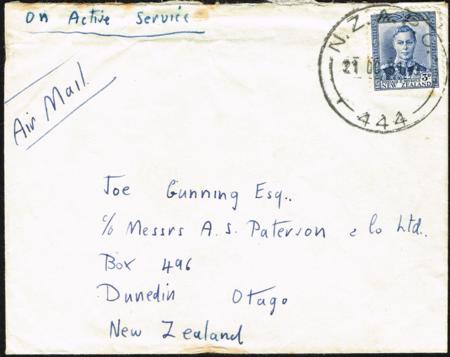 On Active Service
Air Mail.
N.Z.A.P.O.
21 OC
444
NEW ZEALAND
3d
Joe Gunning Esq..
c/o Messrs A. S. Paterson & Co Ltd.
Box 496
Dunedin Otago
New Zealand